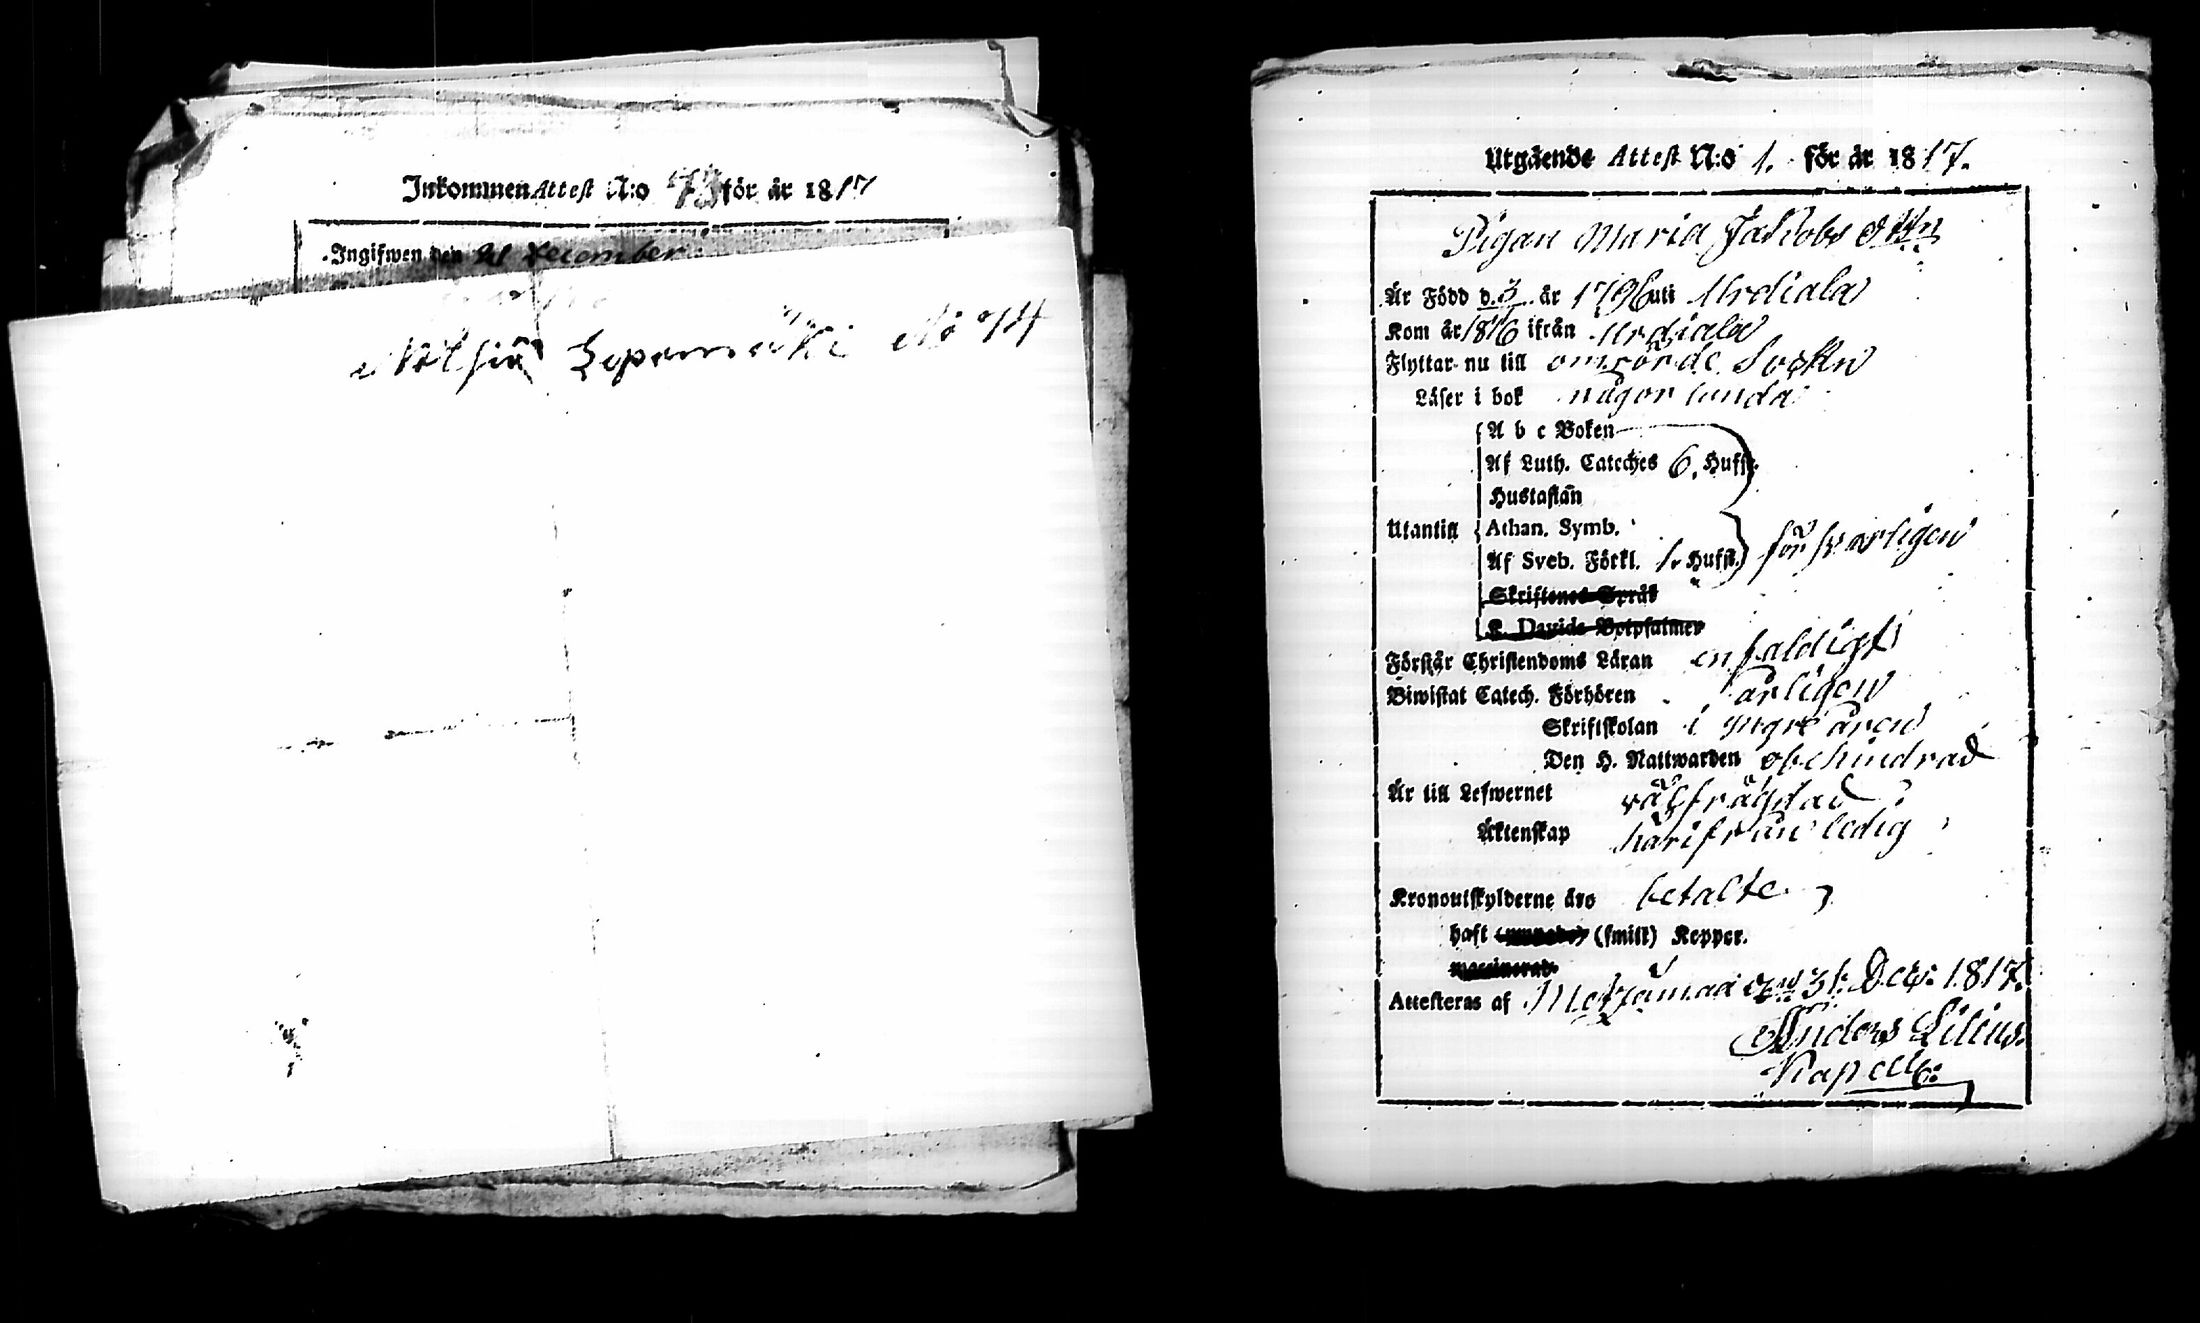 Inkommen Attest N:o 73 för år 1817
Ingifwen den 21 December
Lepomäki No 74
Utgående Attest N:o 1. för år 1817.
Pigan Maria Jakobs dttr
Är Född d. 3 år 1796 uti Urdiala
Kom år 1816 ifrån Urdiala
Flyttar nu till omrörde Sockn
Läser i bok någorlunda
A b c Boken
Af Luth. Cateches 6. Hufst.
Hustaflan
Utantill Athan. Symb.
Af Sveb. Förkl. 1. Hufst. försvarligen
Skriftenes Språk
K. Davids Botpsalmer
Förstår Christendoms Läran enfaldigt
Biwistat Catech. Förhören årligen
Skriftskolan i yngre åren
Den H. Nattwarden obehindrad
Är till Lefwernet välfrägdad
Äktenskap härifrån ledig
Kronoutskylderne äro betalte
haft (smitt) Koppor.
Attesteras af den 31. Dec: 1817.
Anders Lilius.
Kapell: